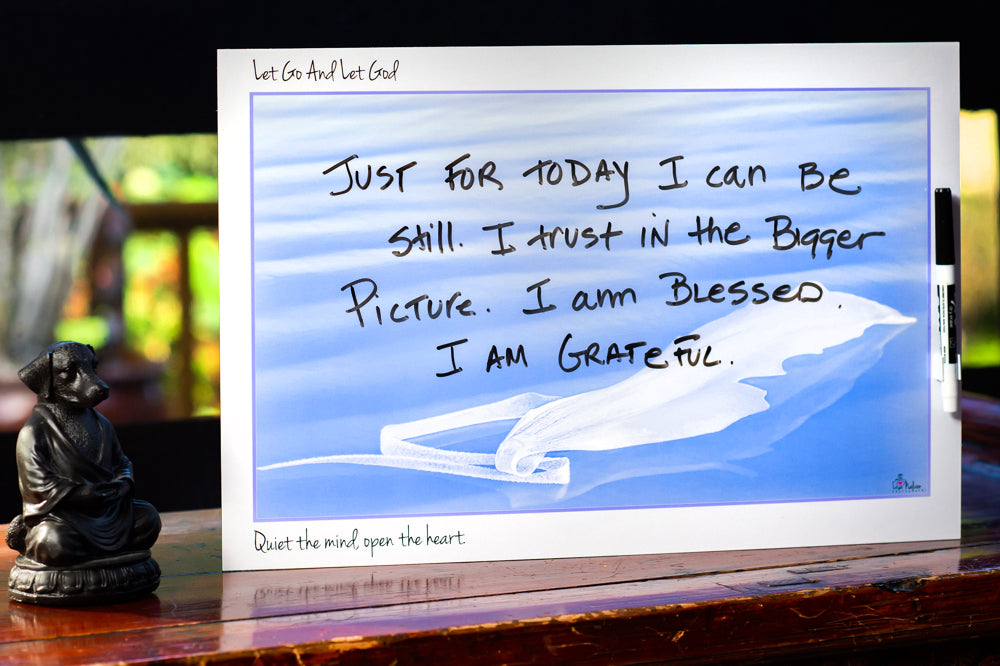 Let Go And Let God
JUST FOR TODAY I can BE
still. I trust iN the BiggeR
PicTURE. I am BLesseD.
I AM GRATeFUL.
Quiet the mind, open the heart.